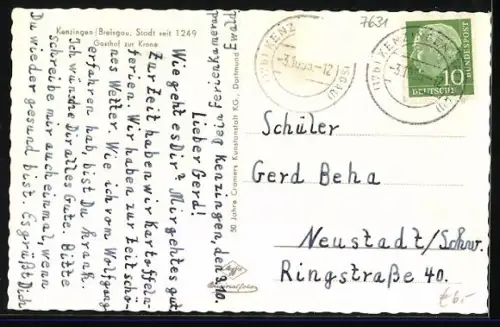 Kenzingen/Breisgau, Stadt seit 1249
Gasthof zur Krone
Kenzingen, den 3.10.
Lieber Gerd!
Wie geht es Dir? Mir geht es gut.
Zur Zeit haben wir Kartoffeln-
ferien. Wir haben zur Zeit schö-
nes Wetter. Wie ich vom Wolfgang
erfahren hab, bist Du krank.
Ich wünsche Dir alles Gute. Bitte
schreibe mir auch einmal, wenn
Du wieder gesund bist. Es grüßt Dich
Dein Ferienkamerad
Ewald
50 Jahre Cramers Kunstanstalt KG., Dortmund
(17b) KENZ
7631
(17b) KENZINGEN
10
DEUTSCHE
BUNDESPOST
Schüler
Gerd Beha
Neustadt/Schw.
Ringstraße 40.
€6,-